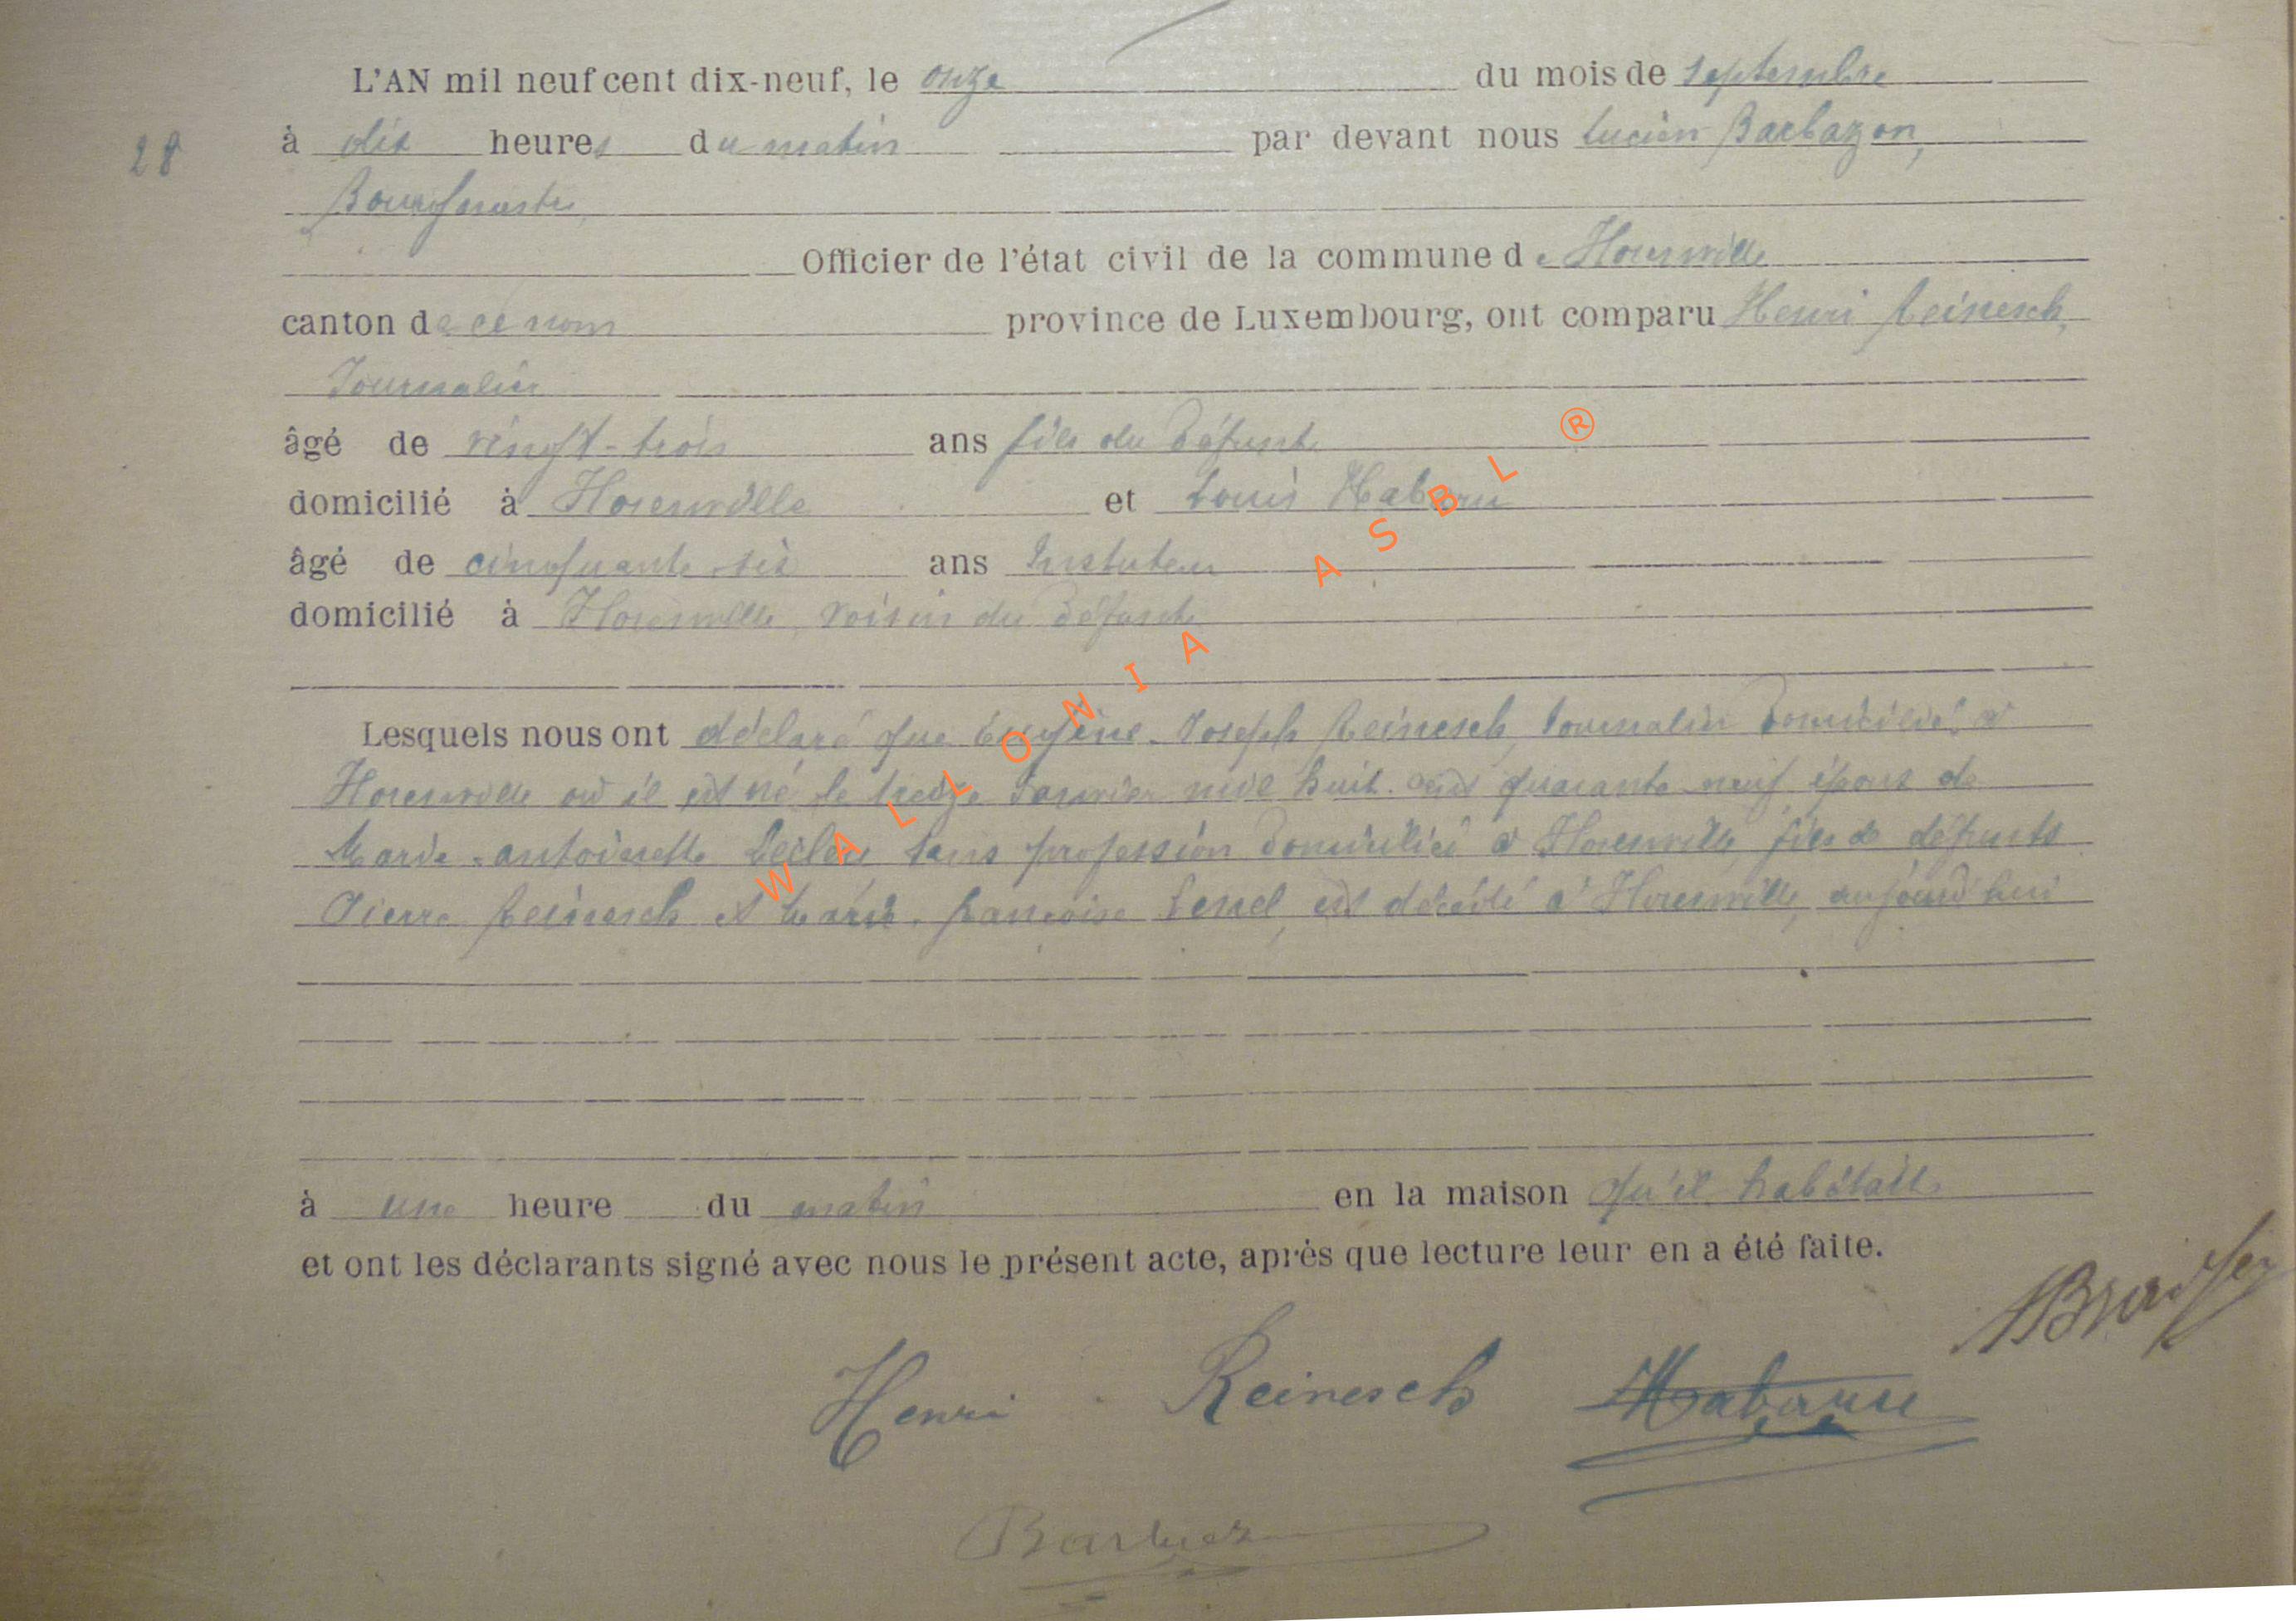 L'AN mil neuf cent dix-neuf, le onze du mois de septembre
28 à dix heures du matin par devant nous Lucien Barbazon,
Bourgmestre
Officier de l'état civil de la commune de Houmville
canton de ce nom province de Luxembourg, ont comparu Henri Reinesch,
Journalier
âgé de vingt-trois ans fils du défunt
domicilié à et Louis Habaru
âgé de cinquante six ans Instituteur
domicilié à voisin du défunt
Lesquels nous ont déclaré que Eugène-Joseph Reinesch, Journalier domicilié à
où il est né le treize Janvier mil huit cent quarante neuf époux de
Marie-antoinette sans profession domiciliée à fils de défunts
Pierre Reinesch et Marie-françoise est décédé à aujourd'hui
à une heure du matin en la maison qu'il habitait
et ont les déclarants signé avec nous le présent acte, après que lecture leur en a été faite.
Henri Reinesch Habaru
WALLONIA ASBL ®